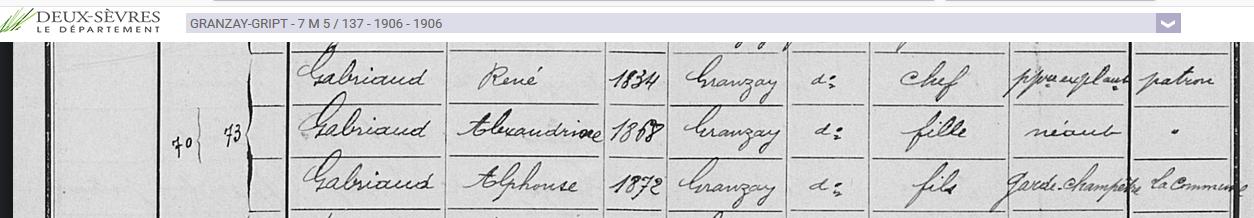 DEUX-SÈVRES
LE DÉPARTEMENT
GRANZAY-GRIPT - 7 M 5 / 137 - 1906 - 1906
Gabriaud René 1834 Granzay d: chef ppre exploit patron
70 73 Gabriaud Alexandrine 1868 Granzay d: fille néant "
Gabriaud Alphonse 1872 Granzay d: fils garde-champêtre la commune